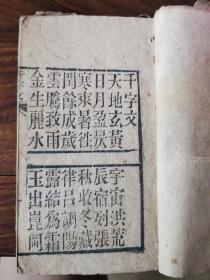 千字文
天地玄黃
宇宙洪荒
日月盈昃
辰宿列張
寒來暑往
秋收冬藏
閏餘成歲
律呂調陽
雲騰致雨
露結為霜
金生麗水
玉出崑岡